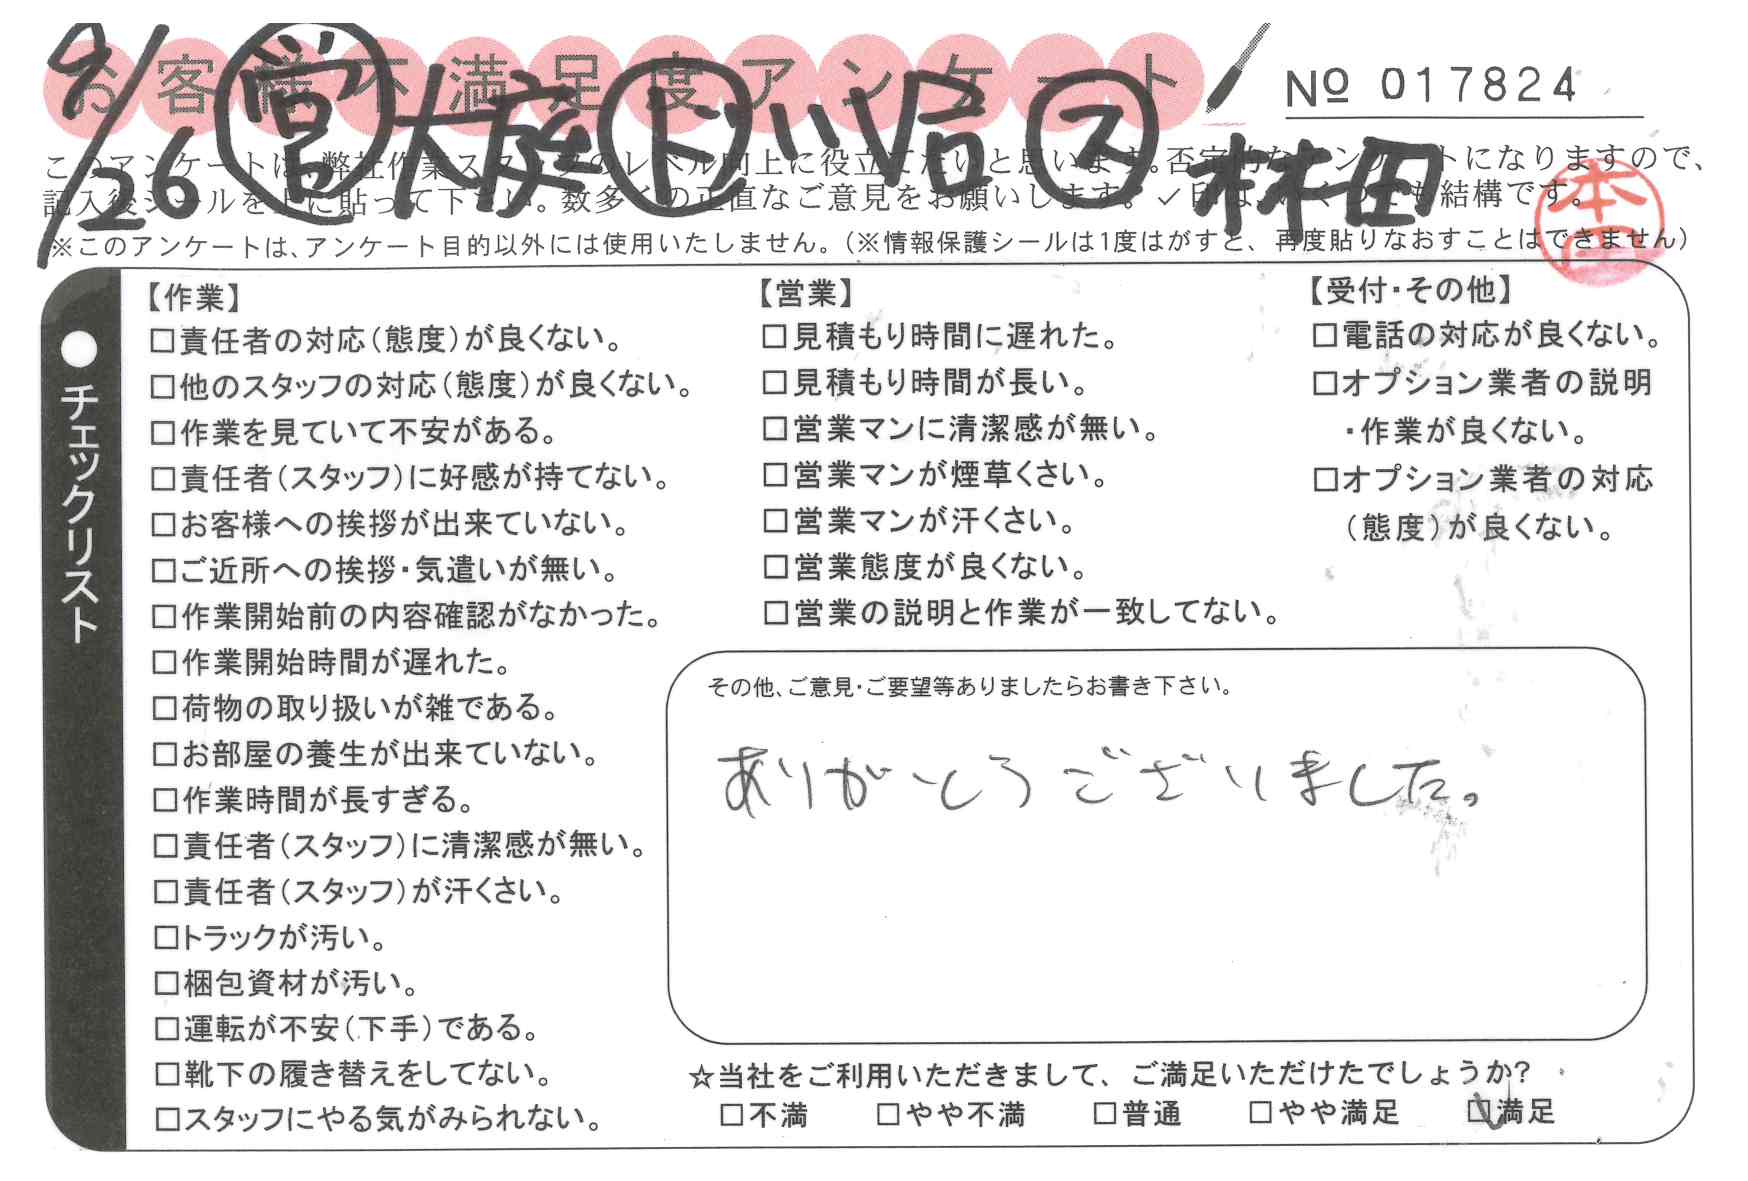 お客様不満足度アンケート
№ 017824
9/26 営 大庭 ド 小沼 ス 林田
このアンケートは、弊社作業スタッフのレベル向上に役立てたいと思います。否定的なアンケートになりますので、
記入後シールを上に貼って下さい。数多くの正直なご意見をお願いします。✓印は、いくつでも結構です。
※このアンケートは、アンケート目的以外には使用いたしません。(※情報保護シールは1度はがすと、再度貼りなおすことはできません)
本田
●チェックリスト
【作業】
□責任者の対応(態度)が良くない。
□他のスタッフの対応(態度)が良くない。
□作業を見ていて不安がある。
□責任者(スタッフ)に好感が持てない。
□お客様への挨拶が出来ていない。
□ご近所への挨拶・気遣いが無い。
□作業開始前の内容確認がなかった。
□作業開始時間が遅れた。
□荷物の取り扱いが雑である。
□お部屋の養生が出来ていない。
□作業時間が長すぎる。
□責任者(スタッフ)に清潔感が無い。
□責任者(スタッフ)が汗くさい。
□トラックが汚い。
□梱包資材が汚い。
□運転が不安(下手)である。
□靴下の履き替えをしてない。
□スタッフにやる気がみられない。
【営業】
□見積もり時間に遅れた。
□見積もり時間が長い。
□営業マンに清潔感が無い。
□営業マンが煙草くさい。
□営業マンが汗くさい。
□営業態度が良くない。
□営業の説明と作業が一致してない。
【受付・その他】
□電話の対応が良くない。
□オプション業者の説明
・作業が良くない。
□オプション業者の対応
(態度)が良くない。
その他、ご意見・ご要望等ありましたらお書き下さい。
ありがとうございました。
☆当社をご利用いただきまして、ご満足いただけたでしょうか?
□不満 □やや不満 □普通 □やや満足 ☑満足